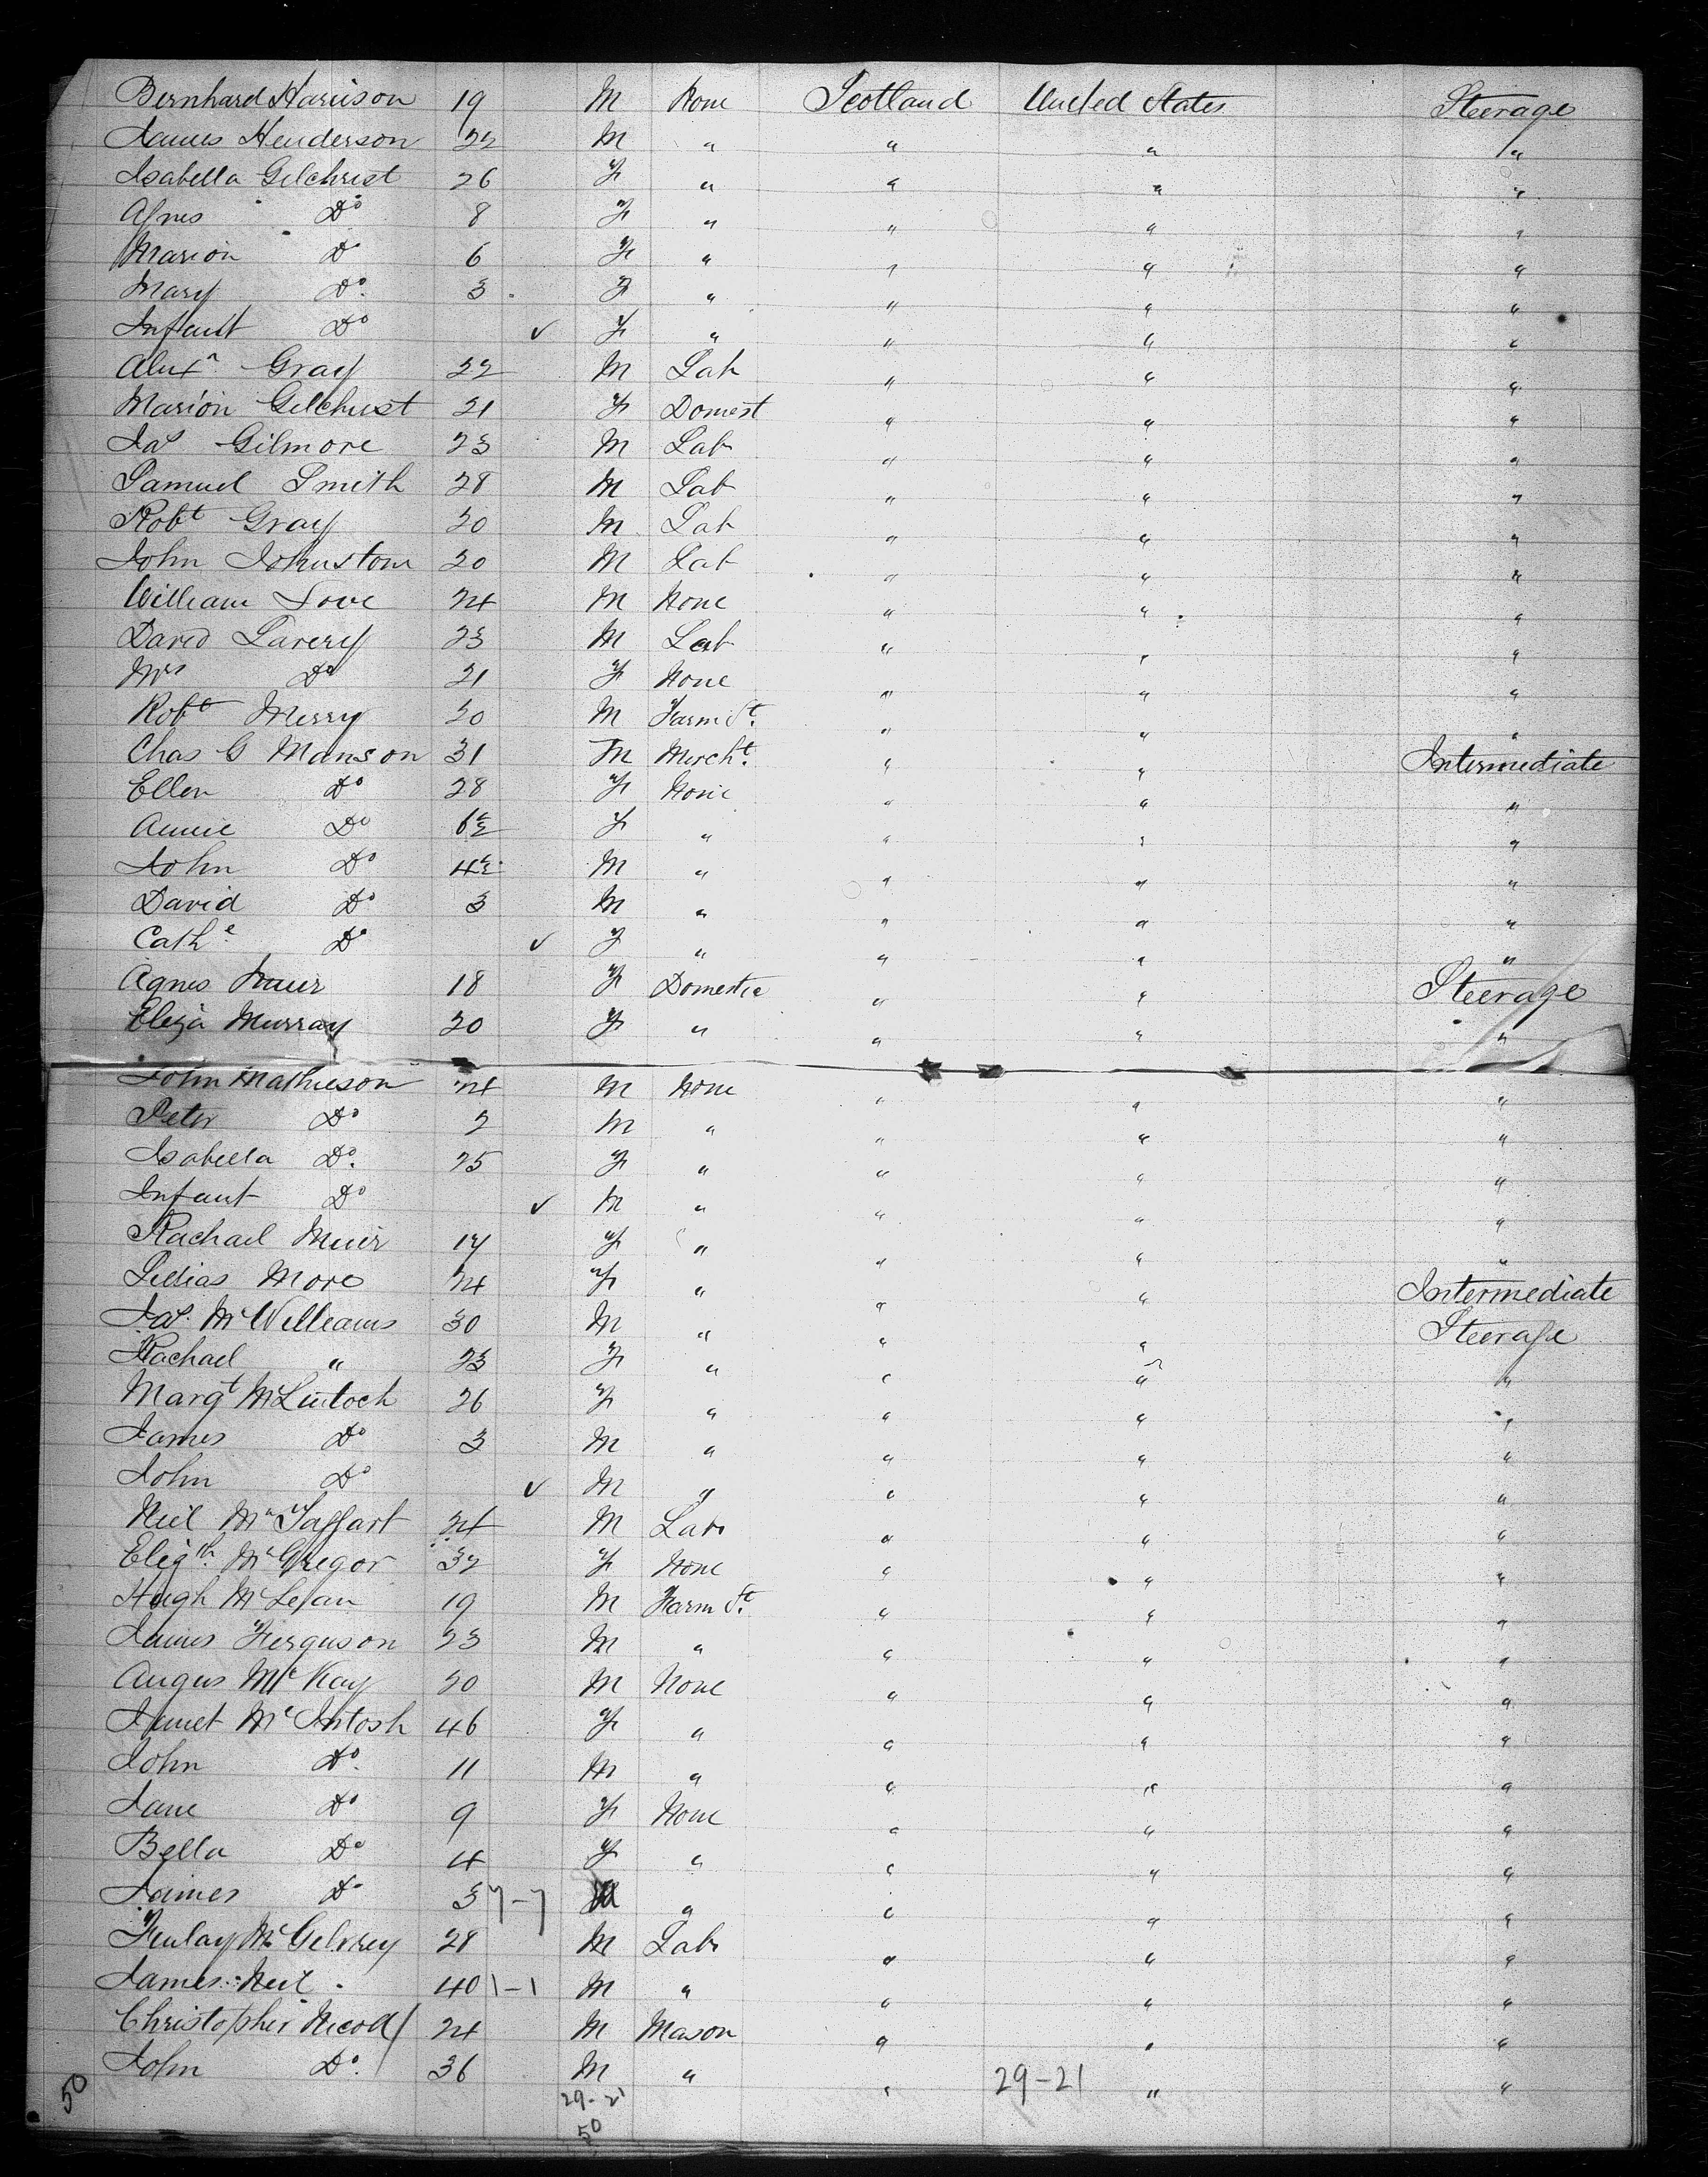 Bernhard Harrison 19 M None Scotland United States Steerage
James Henderson 22 M " " " "
Isabella Gilchrist 26 F " " " "
Agnes Do 8 F " " " "
Marion Do 6 F " " " "
Mary Do. 3 F " " " "
Infant Do ✓ F " " " "
Alexr Gray 22 M Lab " " "
Marion Gilchrist 21 F Domest " " "
Jas Gilmore 23 M Lab " " "
Samuel Smith 28 M Lab " " "
Robt Gray 20 M Lab " " "
John Johnstone 20 M Lab " " "
William Love 24 M None " " "
David Lavery 23 M Lab " " "
Mrs Do 21 F None " " "
Robt Merry 20 M Farm St. " " "
Chas G Manson 31 M Mercht. " " Intermediate
Ellen Do 28 F None " " "
Annie Do 6½ F " " " "
John Do 4½ M " " " "
David Do 3 M " " " "
Cathe. Do ✓ F " " " "
Agnes 18 F Domestic " " Steerage
Eliza Murray 20 F " " " "
John Mathieson 24 M None " " "
Peter Do 2 M " " " "
Isabella Do. 25 F " " " "
Infant Do ✓ M " " " "
Rachael Muir 17 F " " " "
Lillias More 24 F " " " Intermediate
Jas. McWilliams 30 M " " " Steerage
Rachael " 23 F " " " "
Margt McLintoch 26 F " " " "
James Do 3 M " " " "
John Do ✓ M " " " "
Neil McTaggart 24 M Lab " " "
Elizth. McGregor 32 F None " " "
Hugh McLean 19 M Farm St. " " "
James Ferguson 23 M " " " "
Angus McKay 20 M None " " "
Janet McIntosh 46 F " " " "
John Do. 11 M " " " "
Jane Do 9 F None " " "
Bella Do 4 F " " " "
James Do 3 7-7 M " " " "
Finlay McGelvrey 28 M Lab " " "
James Neil 40 1-1 M " " " "
Christopher Nicoll 24 M Mason " " "
John Do. 36 M " " 29-21 " "
50 29-21
50